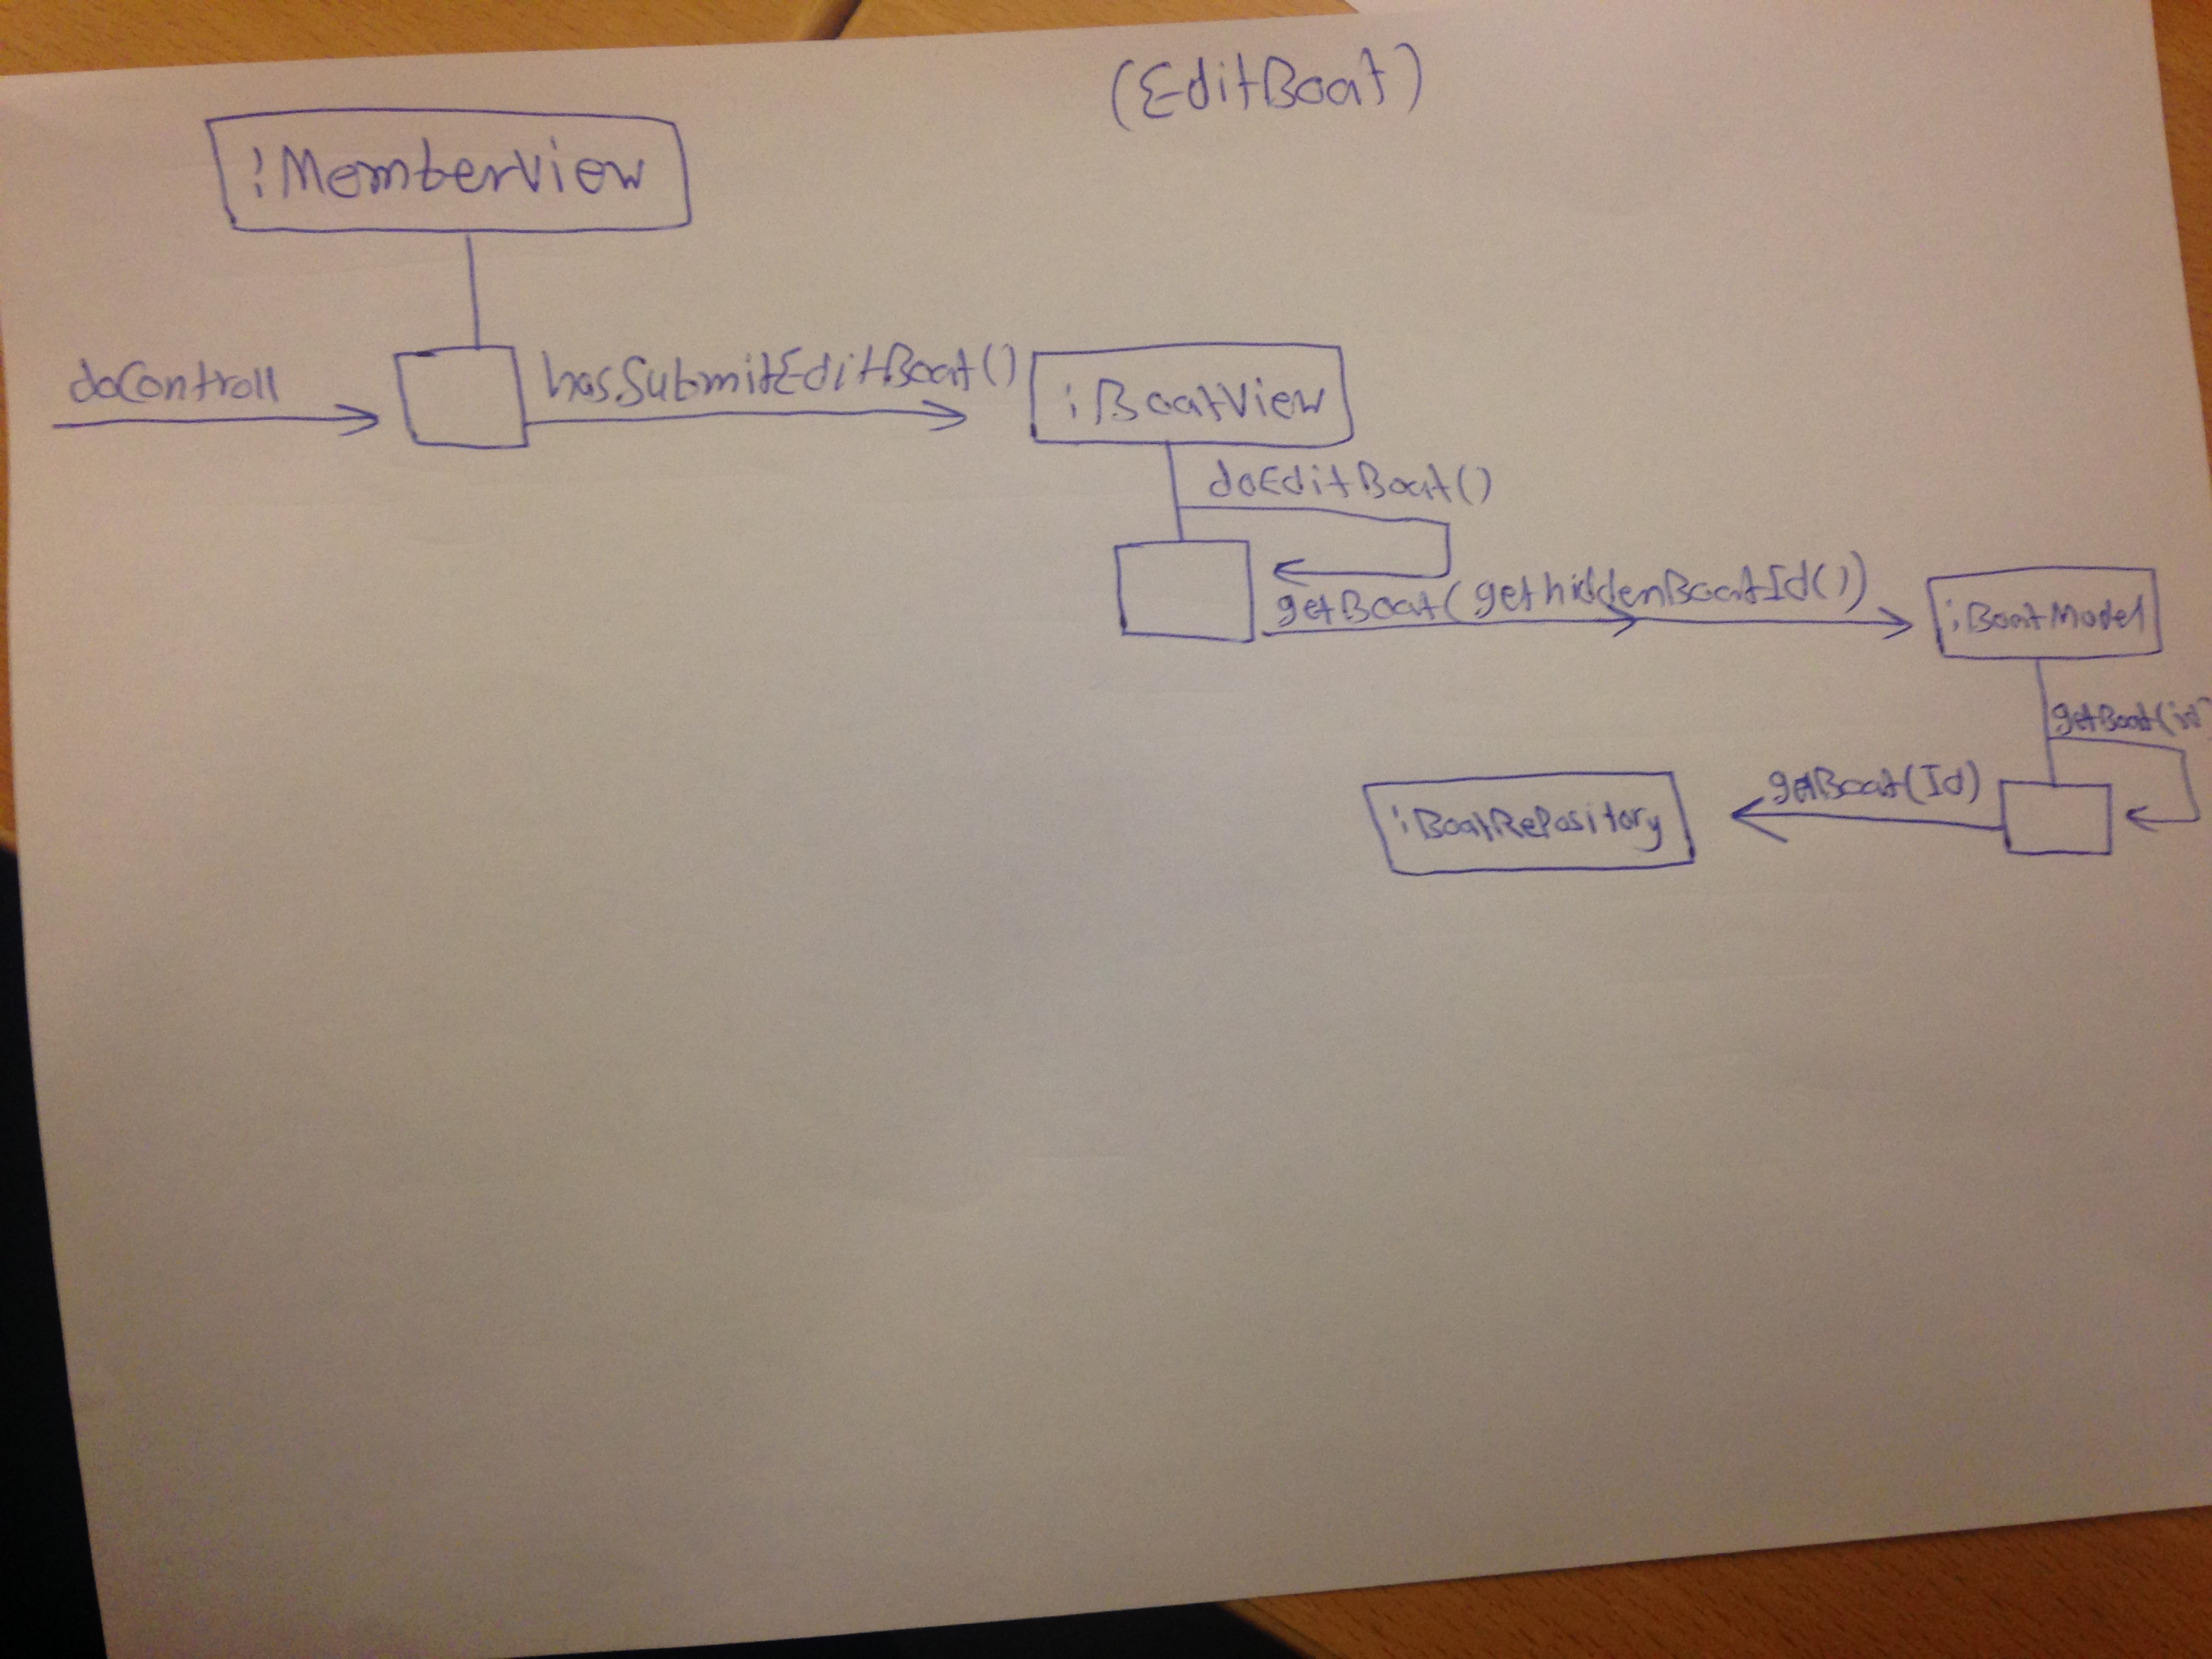 (EditBoat)
:MemberView
doControll
hasSubmitEditBoat()
:BoatView
doEditBoat()
getBoat(gethiddenBoatId())
:BoatModel
getBoat(id)
:BoatRepository
getBoat(Id)